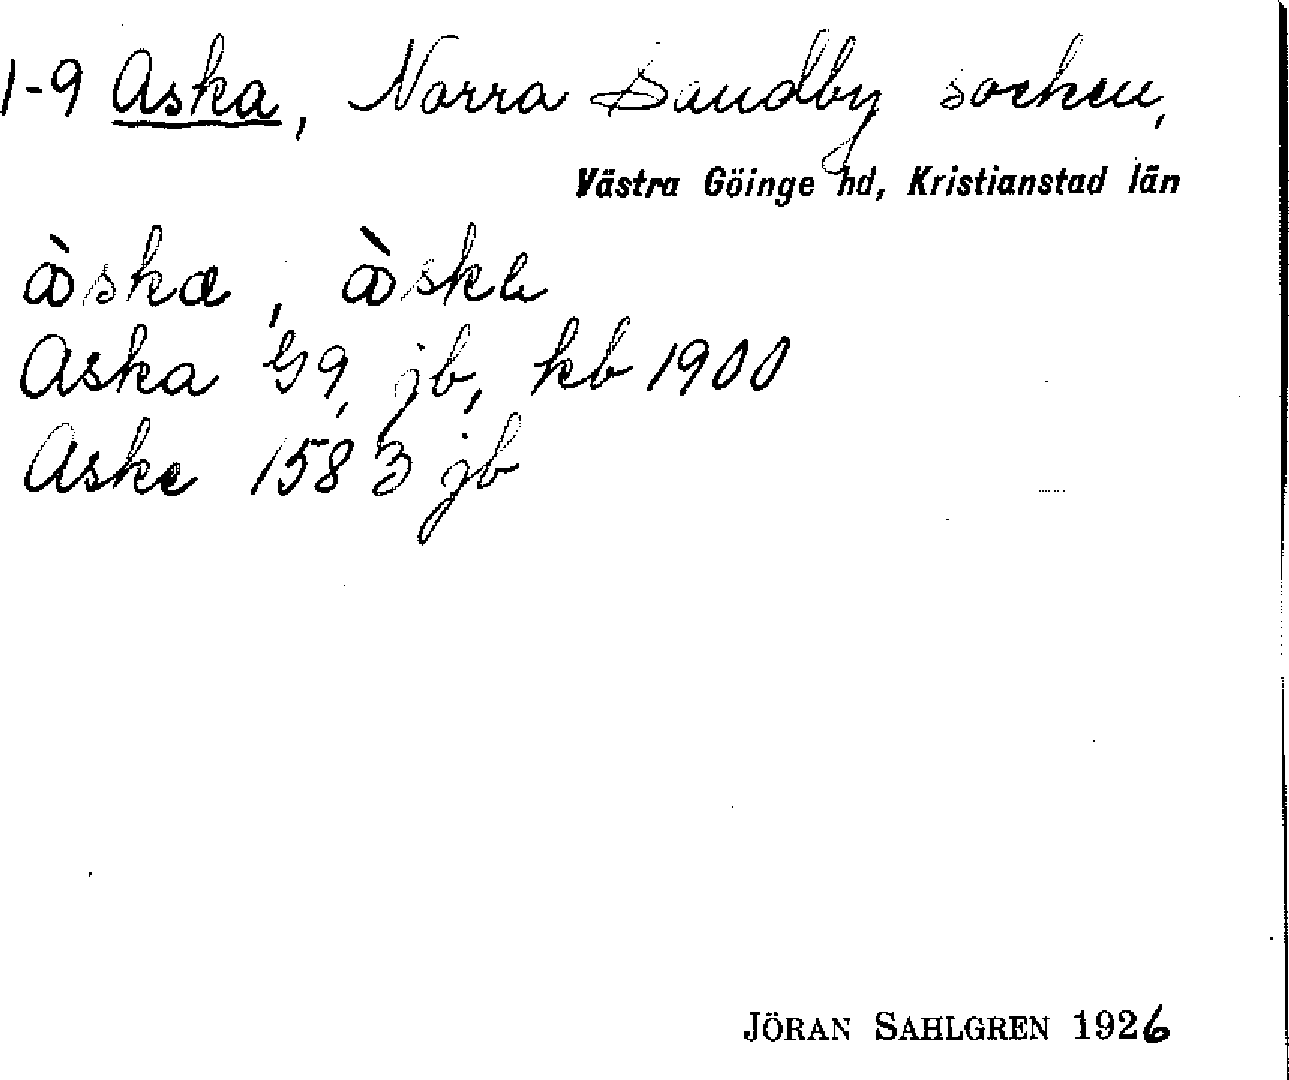 1-9 Aska, Norra Sandby socken,
Västra Göinge hd, Kristianstad län
àska, àske
Aska G9, jb, kb 1900
Aske 1583 jb
JÖRAN SAHLGREN 1926